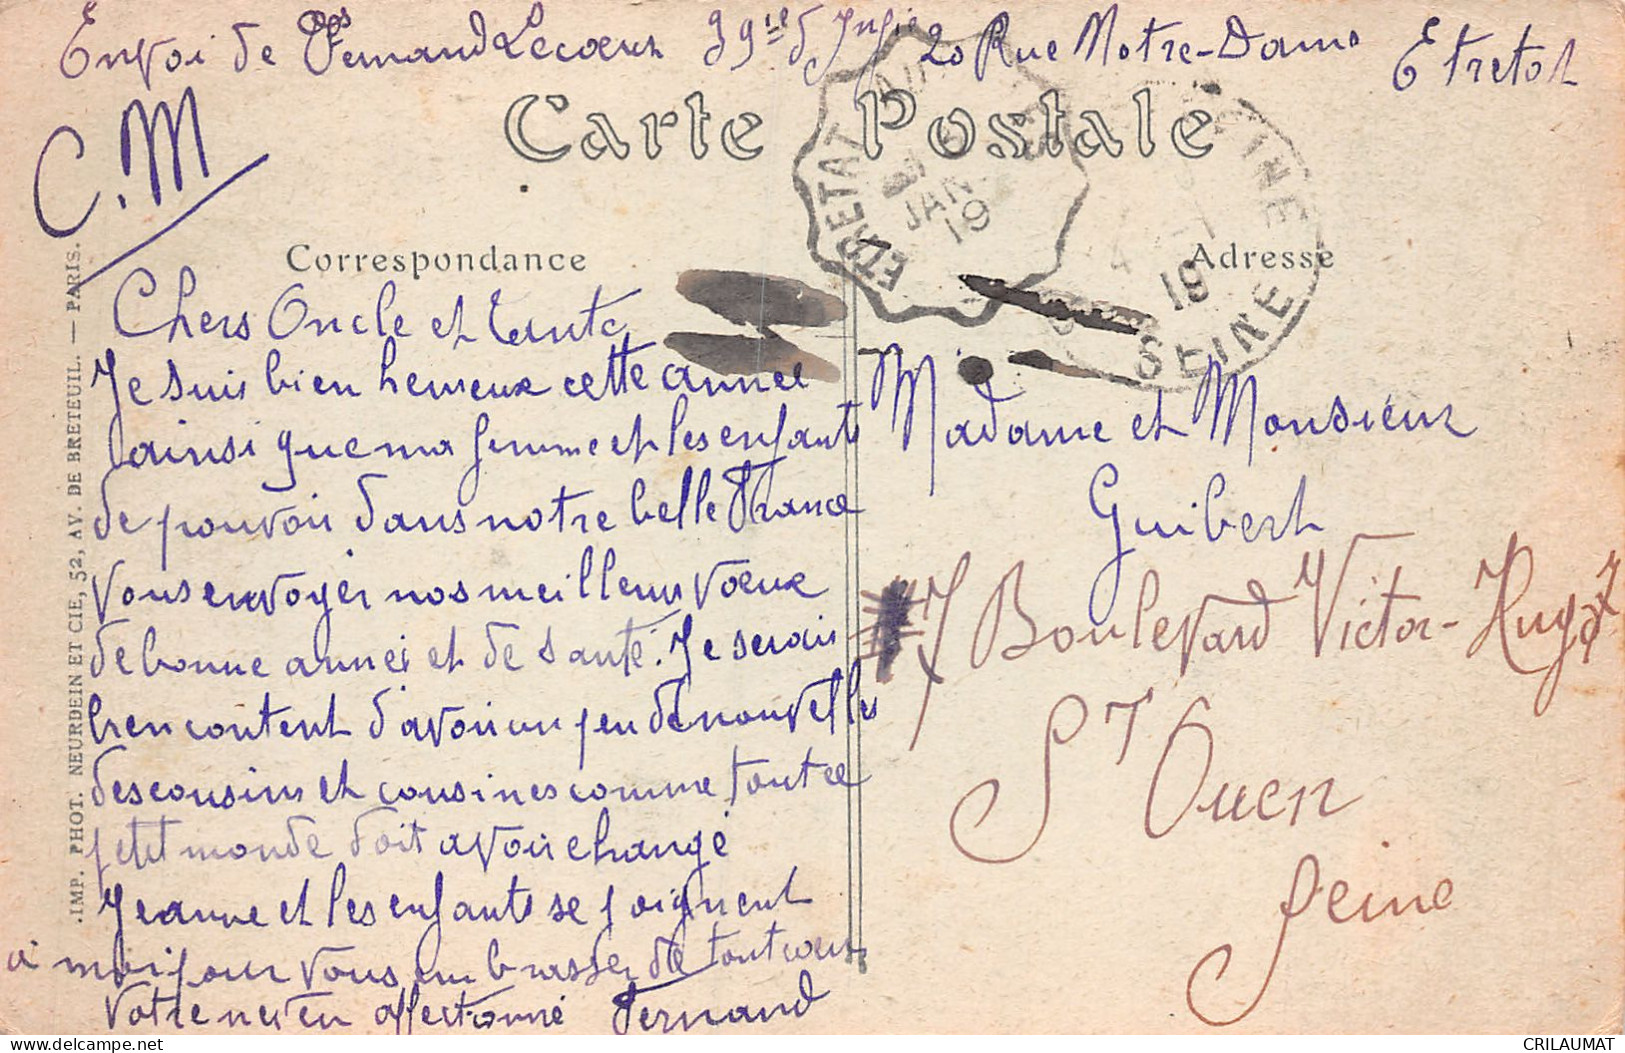 Envoi de Fernand Lecoeur 39ie d'Infie 20 Rue Notre-Dame Etretat
C.M
Carte Postale
ETRETAT
JAN
19
19
SEINE
Correspondance
Adresse
Chers Oncle et Tante
Je suis bien heureux cette année
ainsi que ma femme et les enfants
de pouvoir dans notre belle France
vous envoyer nos meilleurs voeux
de bonne année et de santé. Je serais
bien content d'avoir un peu de nouvelles
des cousins et cousines comme tout ce
petit monde doit avoir changé
Jeanne et les enfants se joignent
à moi pour vous embrasser de tout coeur
Votre neveu affectionné Fernand
Madame et Monsieur
Guibert
7 Boulevard Victor-Hugo 7
St Ouen
Seine
IMP. PHOT. NEURDEIN ET CIE, 52, AV. DE BRETEUIL. — PARIS.
CRILAUMAT